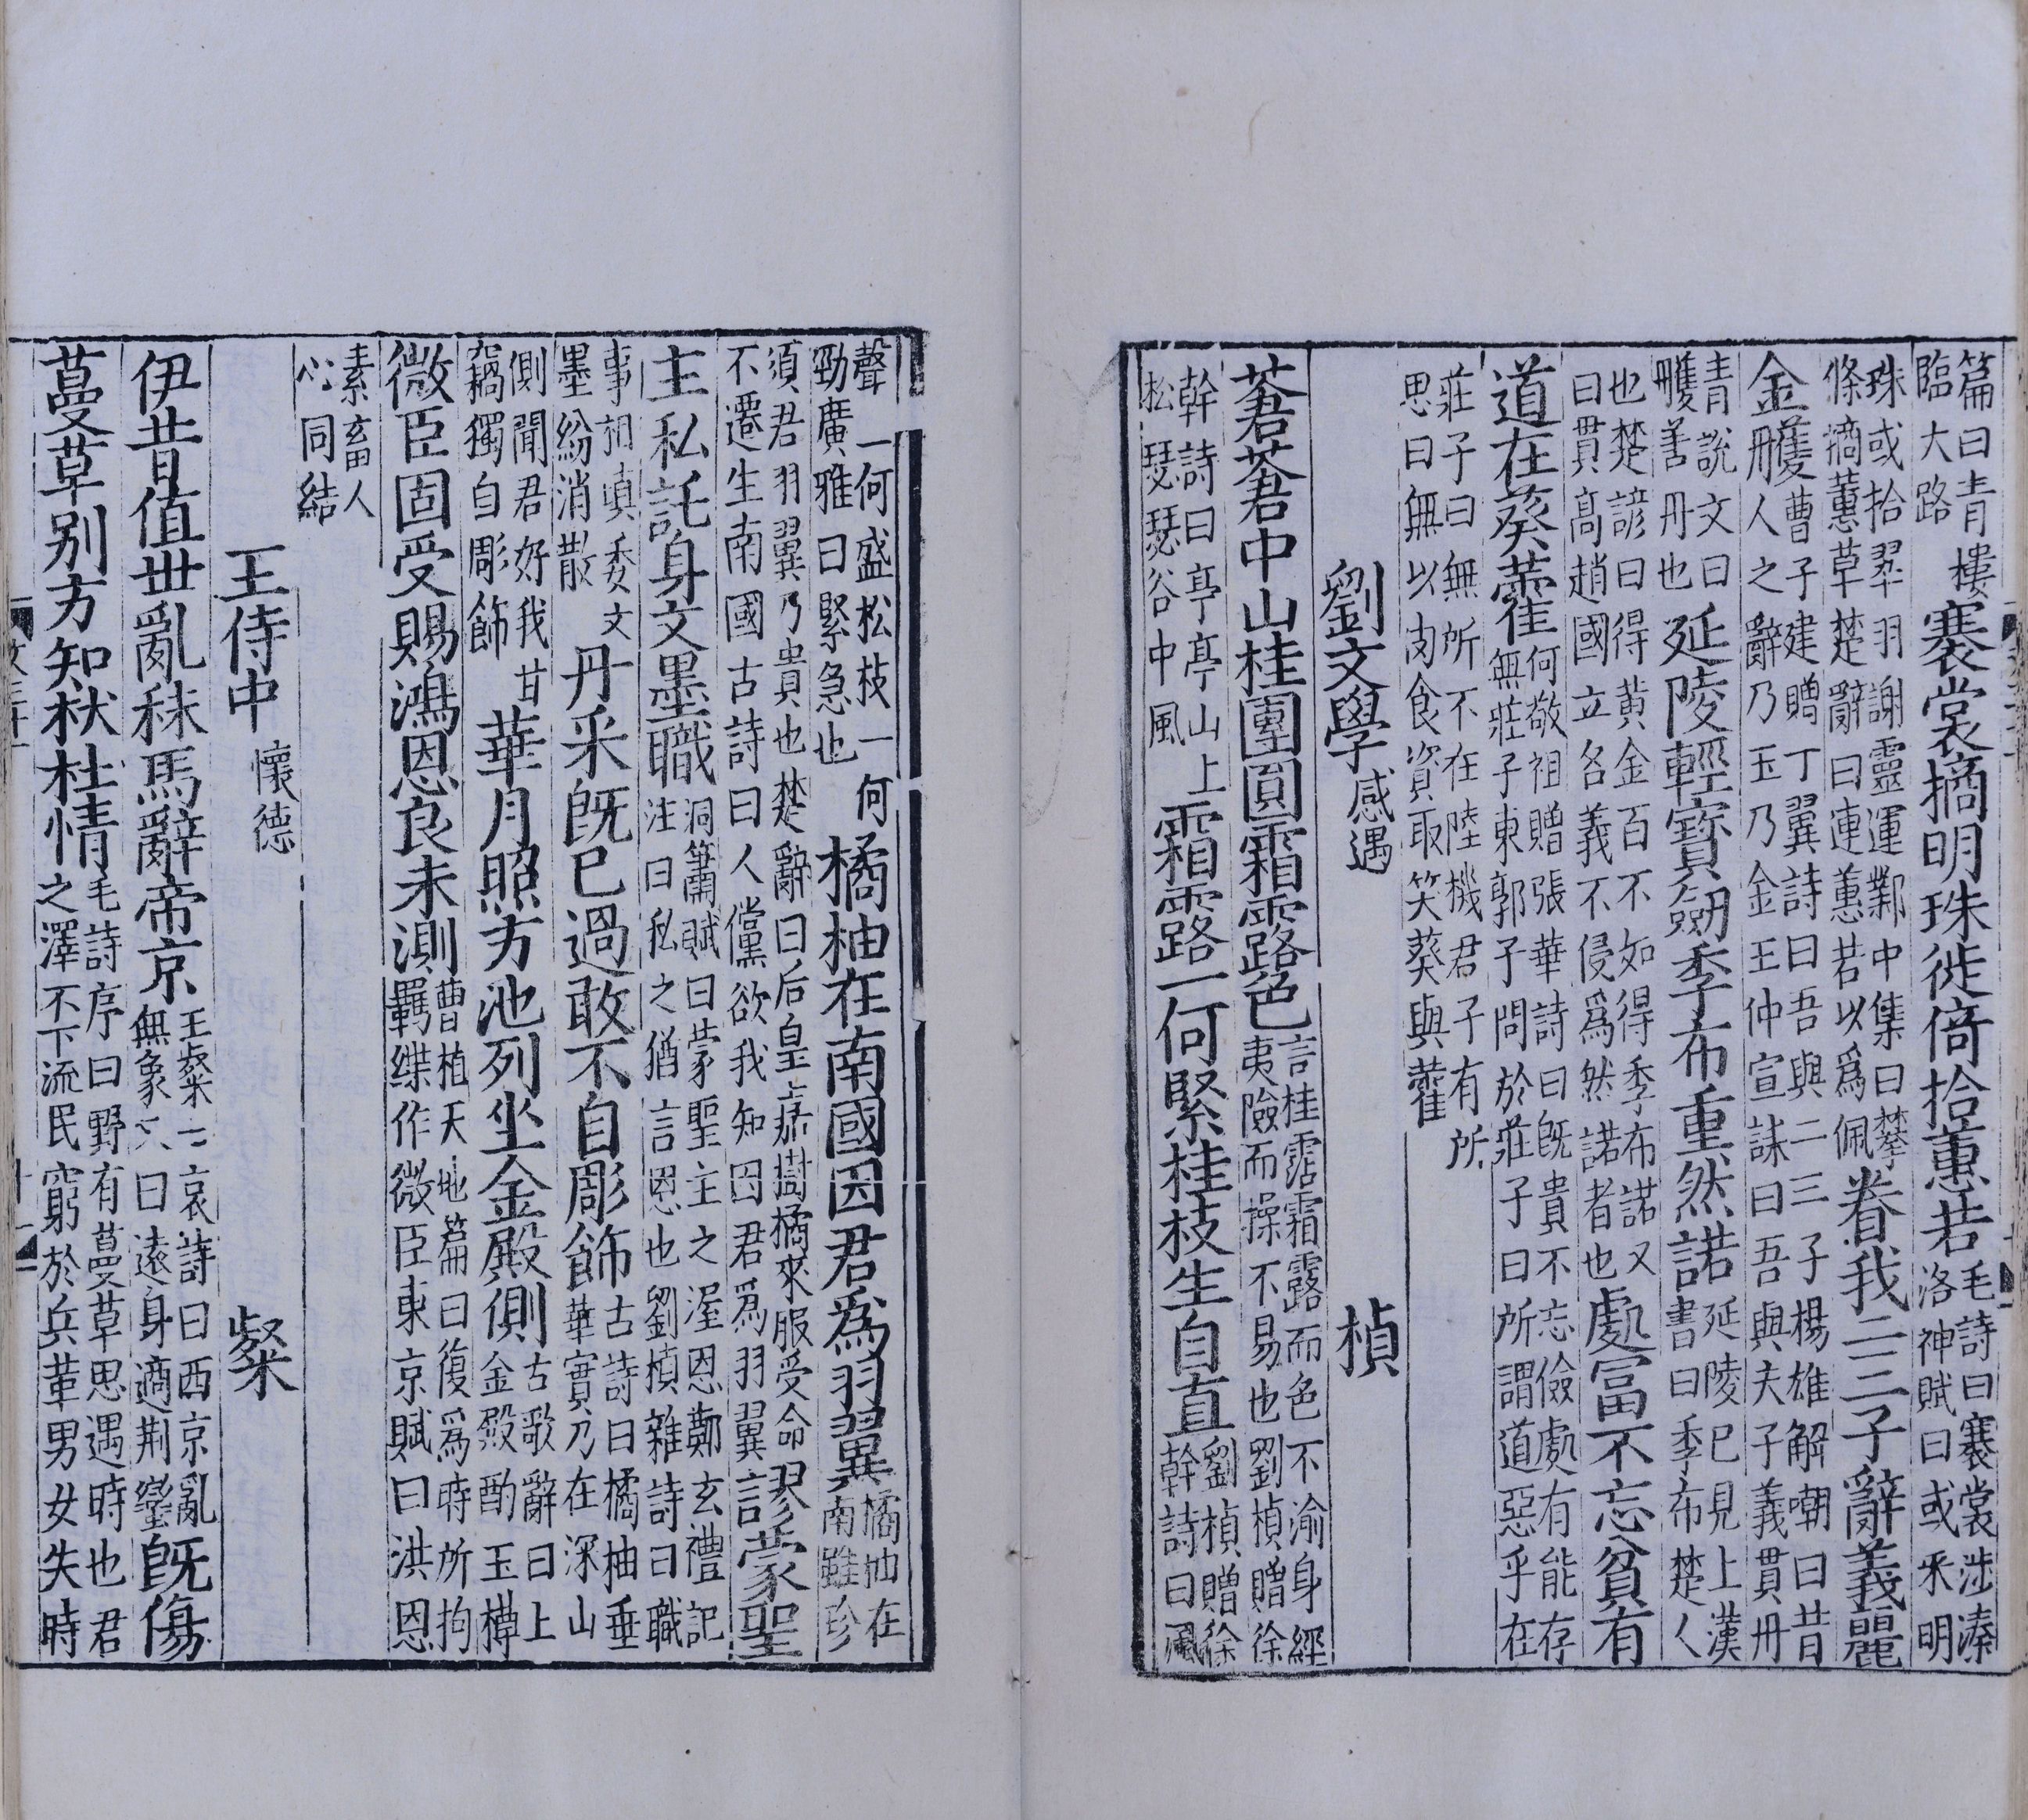 篇曰青樓
臨大路
褰裳摘明珠徙倚拾蕙若
毛詩曰褰裳涉溱
洛神賦曰或采明
珠或拾翠羽謝靈運鄴中集曰攀
條摘蕙草楚辭曰連蕙若以爲佩
眷我二三子辭義麗
金雘
曹子建贈丁翼詩曰吾與二三子楊雄解嘲曰昔
人之辭乃玉乃金王仲宣誄曰吾與夫子義貫丹
青說文曰
雘善丹也
延陵輕寶劒季布重然諾
延陵已見上漢
書曰季布楚人
也楚諺曰得黃金百不如得季布諾又
曰貫高趙國立名義不侵爲然諾者也
處富不忘貧有
道在葵藿
何敬祖贈張華詩曰旣貴不忘儉處有能存
無莊子東郭子問於莊子曰所謂道惡乎在
莊子曰無所不在陸機君子有所
思曰無以肉食資取笑葵與藿
劉文學感遇 楨
蒼蒼中山桂團圓霜露色
言桂霑霜露而色不渝身經
夷險而操不易也劉楨贈徐
幹詩曰亭亭山上
松瑟瑟谷中風
霜露一何緊桂枝生自直
劉楨贈徐
幹詩曰風
聲一何盛松枝一何
勁廣雅曰緊急也
橘柚在南國因君爲羽翼
橘柚在
南雖珍
須君羽翼乃貴也楚辭曰后皇嘉樹橘來服受命
不遷生南國古詩曰人儻欲我知因君爲羽翼
謬蒙聖
主私託身文墨職
洞簫賦曰蒙聖主之渥恩鄭玄禮記
注曰私之猶言恩也劉楨雜詩曰職
事相塡委文
墨紛消散
丹采旣已過敢不自彫飾
古詩曰橘柚垂
華實乃在深山
側聞君好我甘
竊獨自彫飾
華月照方池列坐金殿側
古歌辭曰上
金殿酌玉樽
微臣固受賜鴻恩良未測
曹植天地篇曰復爲時所拘
羈緤作微臣東京賦曰洪恩
素畜人
心同結
王侍中懷德 粲
伊昔值世亂秣馬辭帝京
王粲七哀詩曰西京亂
無象又曰遠身適荆蠻
旣傷
蔓草別方知杕杜情
毛詩序曰野有蔓草思遇時也君
之澤不下流民窮於兵革男女失時